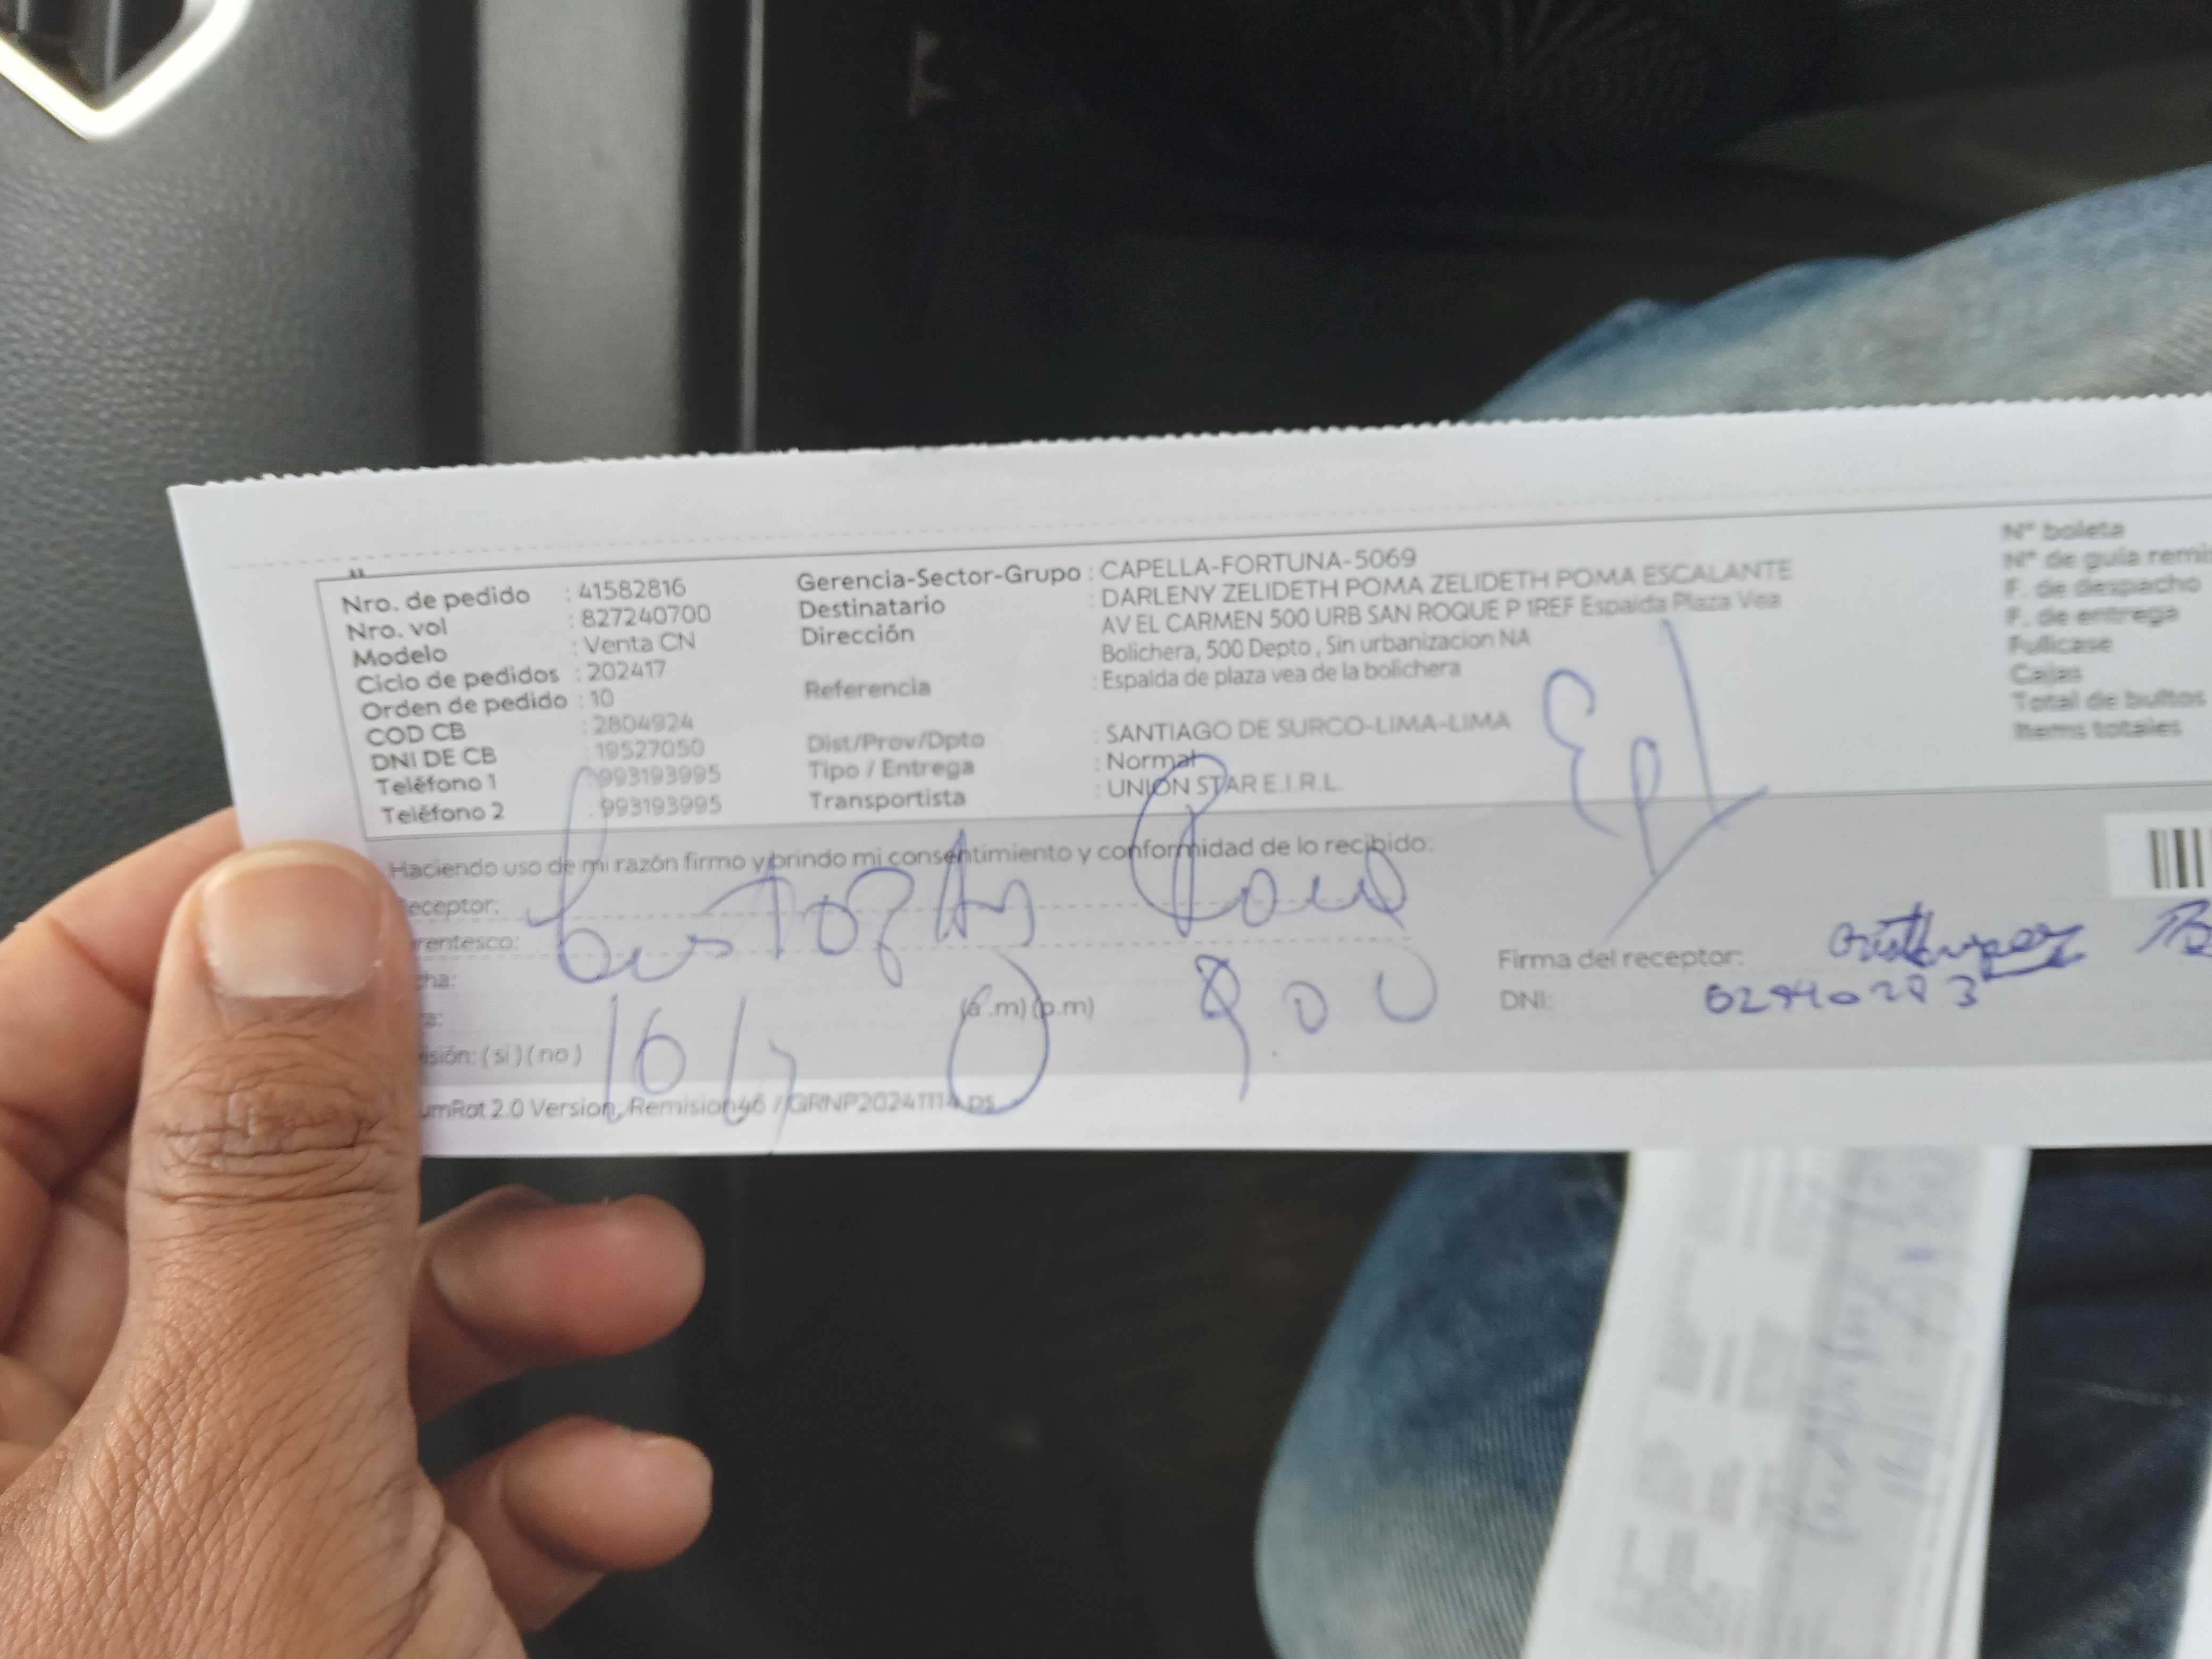 Nro. de pedido : 41582816
Nro. vol : 827240700
Modelo : Venta CN
Ciclo de pedidos : 202417
Orden de pedido : 10
COD CB : 2804924
DNI DE CB : 19527050
Teléfono 1 : 993193995
Teléfono 2 : 993193995
Gerencia-Sector-Grupo : CAPELLA-FORTUNA-5069
Destinatario : DARLENY ZELIDETH POMA ZELIDETH POMA ESCALANTE
Dirección : AV EL CARMEN 500 URB SAN ROQUE P 1REF Espalda Plaza Vea
Bolichera, 500 Depto , Sin urbanizacion NA
Referencia : Espalda de plaza vea de la bolichera
Dist/Prov/Dpto : SANTIAGO DE SURCO-LIMA-LIMA
Tipo / Entrega : Normal
Transportista : UNION STAR E.I.R.L.
N° boleta
N° de guía remis
F. de despacho
F. de entrega
Fullcase
Cajas
Total de bultos
Items totales
Haciendo uso de mi razón firmo y brindo mi consentimiento y conformidad de lo recibido:
eceptor:
rentesco:
ha:
(a.m) (p.m) 9.00
isión: (si) (no) 16/
Firma del receptor:
DNI:
umRot 2.0 Version, Remision46 / GRNP20241114.ps